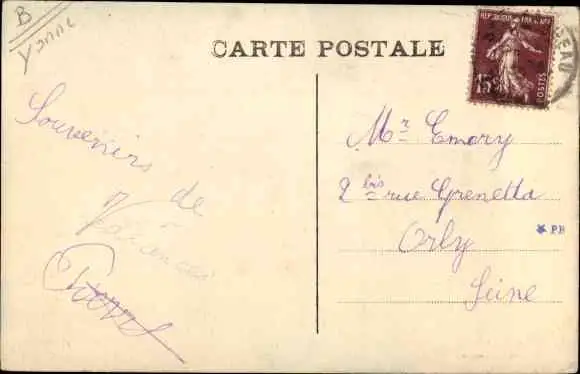 B
Yonne
CARTE POSTALE
REPUBLIQUE FRANÇAISE
15c
POSTES
EAU
Souvenirs
de
Vacances
Mr Emory
2 bis rue Grenetta
Orly
Seine
PB